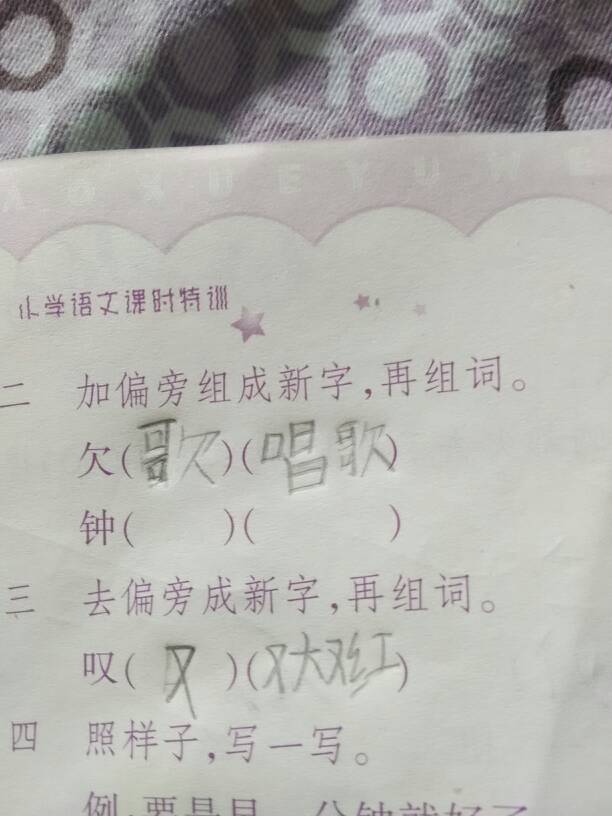 XUEYUWE
小学语文课时特训
二 加偏旁组成新字,再组词。
欠(歌)(唱歌)
钟( )( )
三 去偏旁成新字,再组词。
叹(又)(又大又红)
四 照样子,写一写。
例:要是早一分钟就好了